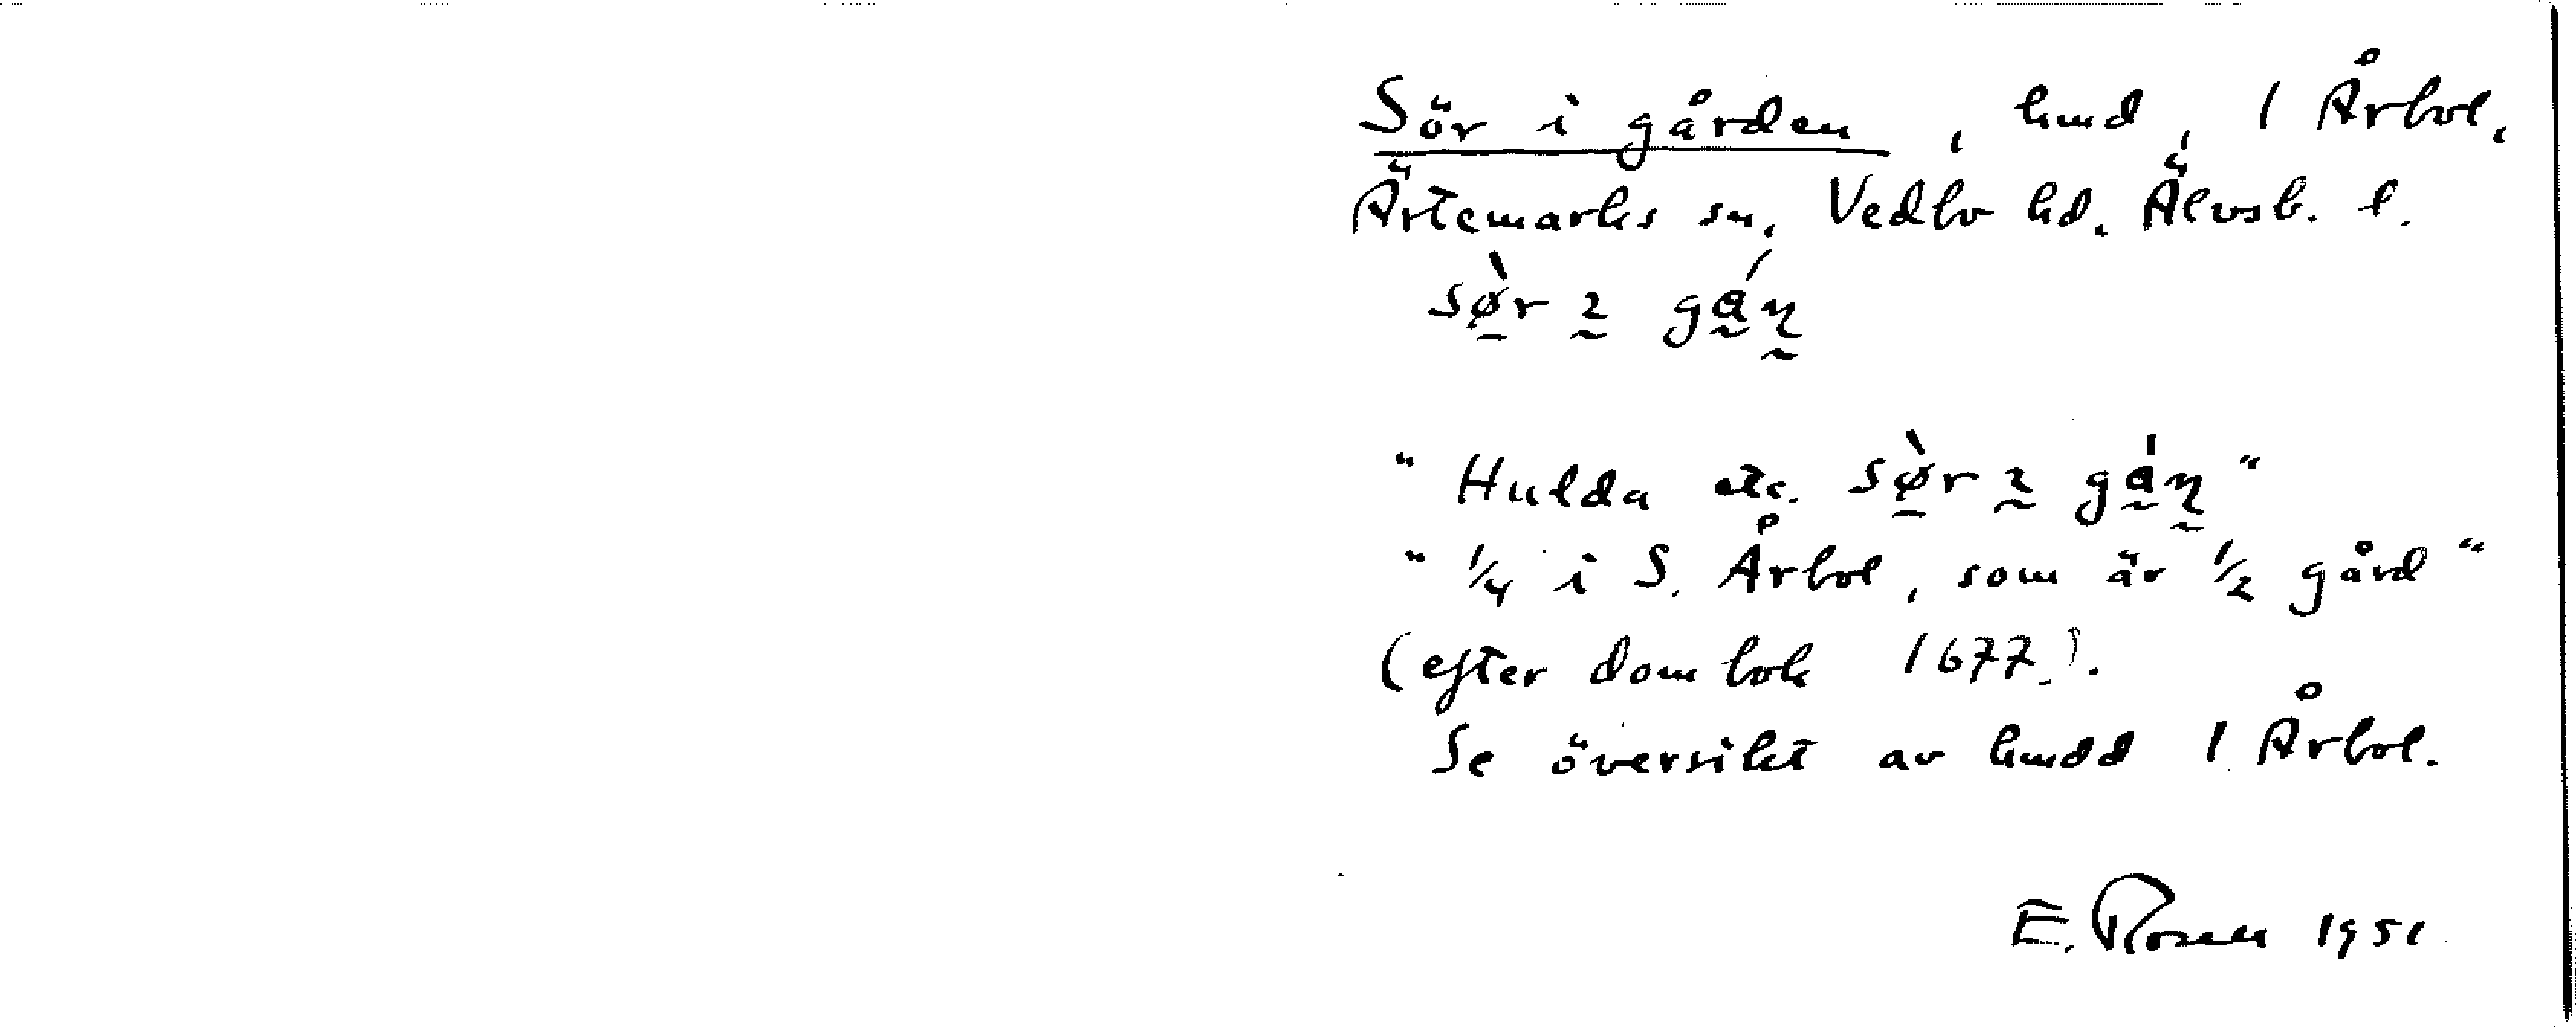 Sör i gården, hmd, 1 Årbol,
Ärtemarks sn, Vedbo hd. Älvsb. l.
sø̀r ı gáɳ
" Hulda etc. sø̀r ı gáɳ "
" 1/4 i S. Årbol, som är 1/2 gård "
(efter dombok 1677.).
Se översikt av hmdd 1 Årbol.
E. Rosell 1951